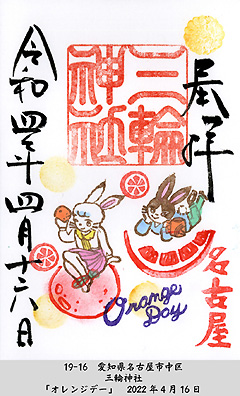 奉拝
三輪
神社
名古屋
令和四年四月十六日
Orange
Day
19-16 愛知県名古屋市中区
三輪神社
「オレンジデー」 2022年4月16日